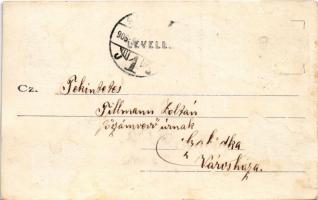 LEVELL.
Cz. Tekintetes
Tillmann Zoltán
főszámvevő úrnak
Városháza.